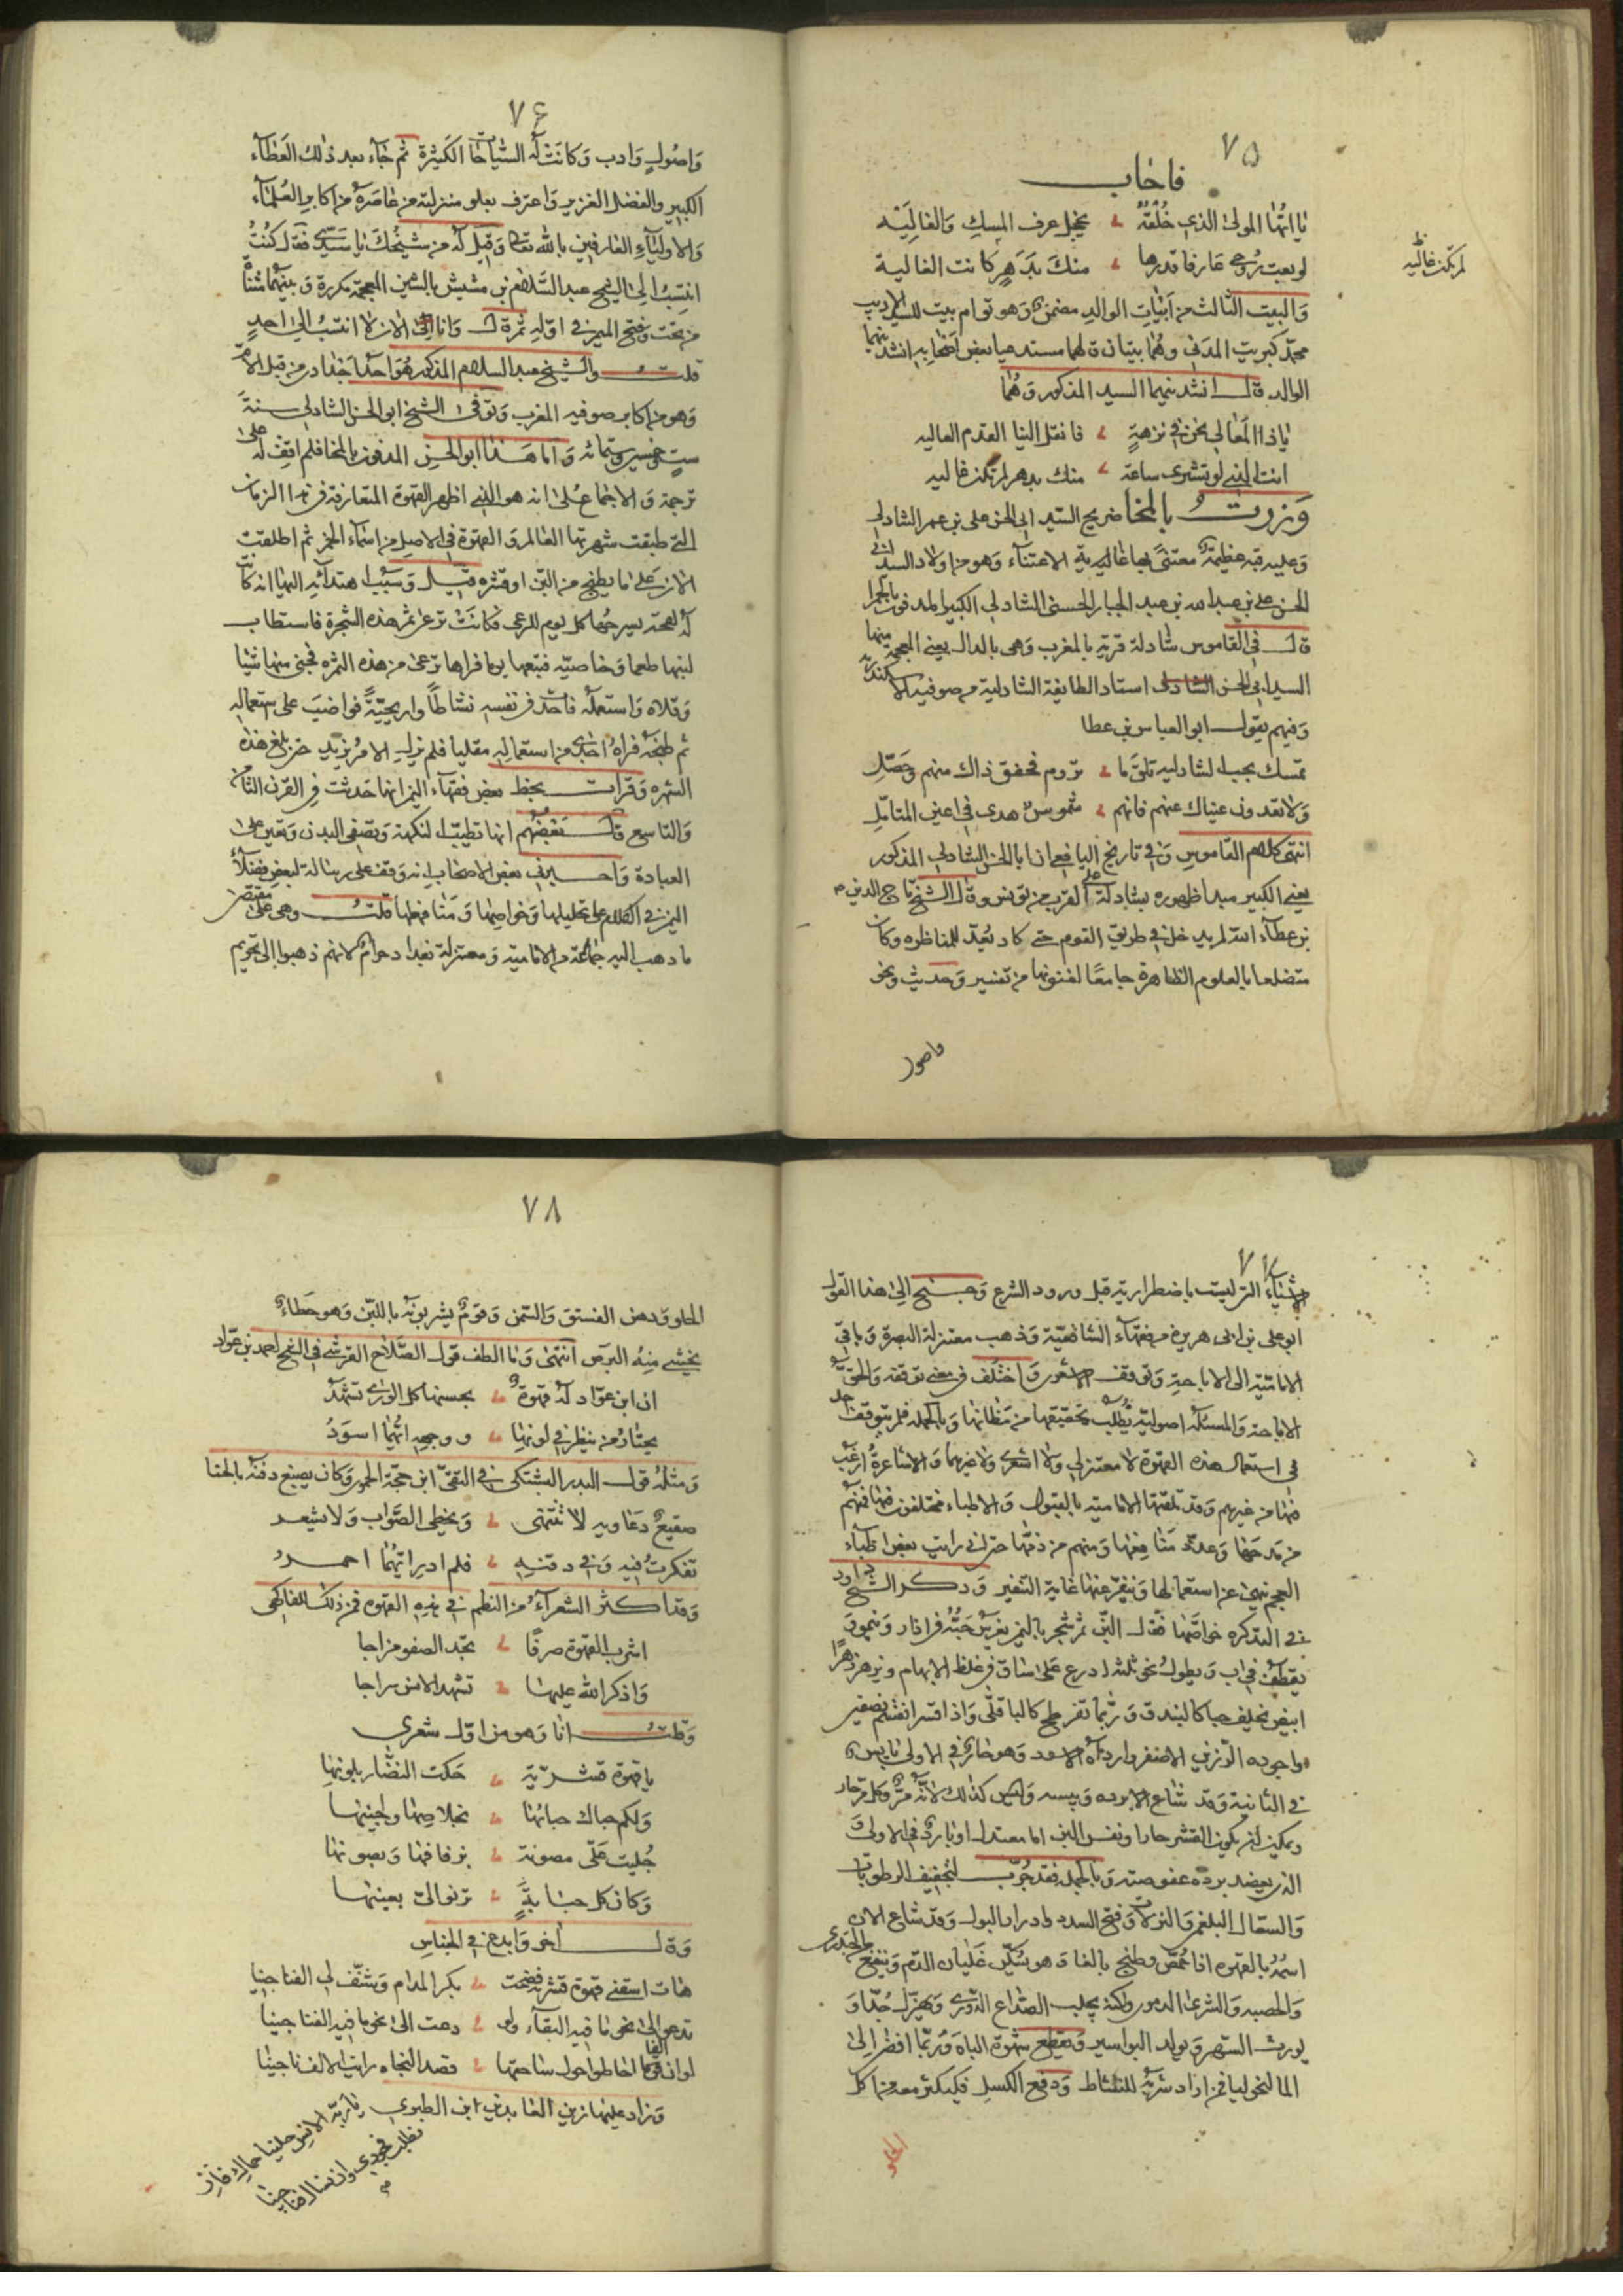 ٧٥
فاجاب
يا ايها المولى الذي خلقه يخجل عرف المسك والغاليه
لو بعت روحي عارفا قدرها منك بدهر كانت الغالية
لم تكن غاليه
والبيت الثالث من ابيات الوالد مضمن وهو توام بيت للسيد الاديب
محمد كبريت المدني وهما بيتان قالهما مستدعيا بعض اصحابه انشدنيهما
الوالد قال انشدنيهما السيد المذكور وهما
يا ذا المعالي نحن في نزهة فانقل الينا القدم العاليه
انت الذي لو تشترى ساعة منك بدهر لم تكن غاليه
وزرت بالمخا ضريح السيد ابي الحسن علي بن عمر الشاذلي
وعليه قبة عظيمة معتنى بها غاية الاعتناء وهو من اولاد السيد ابي
الحسن علي بن عبد الله بن عبد الجبار الحسني الشاذلي الكبير المدفون
قال في القاموس شاذلة قرية بالمغرب وهي بالذال يعني المعجمة منها
السيد ابي الحسن الشاذلي استاد الطايفة الشاذلية من صوفية الاسكندرية
وفيهم يقول ابو العباس بن عطا
تمسك بحب الشاذلية تلق ما تروم فحقق ذاك منهم وحصل
ولا تعدون عيناك عنهم فانهم شموس هدى في اعين المتامل
انتهى كلام القاموس وفي تاريخ اليافعي ان ابا الحسن الشاذلي المذكور
يعني الكبير مبدا ظهوره بشاذلة على القرب من تونس وقال الشيخ تاج الدين
بن عطاء الله لم يدخل في طريق القوم حتى كاد يعد للمناظره وكان
متضلعا بالعلوم الظاهرة جامعا لفنونها من تفسير وحديث ونحو
واصول
٧٦
واصول وادب وكانت له السياحات الكثيرة ثم جاء بعد ذلك العطاء
الكبير والفضل الغزير واعترف بعلو منزلته من عاصره من اكابر العلماء
والاولياء العارفين بالله تعالى وقيل له من شيخك يا سيدي فقال كنت
انتسب الى الشيخ عبد السلام بن مشيش بالشين المعجمة مكررة وبينهما مثناة
من تحت وفتح الميم في اوله ثم قال وانا الان لا انتسب الى احد
قلت والشيخ عبد السلام المذكور هو احد اجدادي من قبل الام
وهو من اكابر صوفيه المغرب وتوفى الشيخ ابو الحسن الشاذلي سنة
ست وخمسين وستمائه واما هذا ابو الحسن المدفون بالمخا فلم اقف له على
ترجمة والاجماع على انه هو الذي اظهر القهوة المتعارفة في هذا الزمان
التي طبقت شهرتها العالم والقهوة في الاصل من اسماء الخمر ثم اطلقت
الان على ما يطبخ من البن او قشره قيل وسبب اهتدائه اليها انه كان
له لقحة يسرحها كل يوم للرعي فكانت ترعى ثمر هذه الشجرة فاستطاب
لبنها طعما وخاصيه فتبعها يوما فراها ترعى من هذه الثمره فجنى منها شيئا
وقلاه واستعمله فاحدث في نفسه نشاطا واريحية فواضب على استعماله
ثم طبخه فراه اجدى من استعماله مقليا فلم يزل الامر يزيد حتى بلغ هذه
الشهره وقرات بخط بعض فقهاء اليمن انها حدثت في القرن الثامن
والتاسع قال بعضهم انها تطيب النكهة وتصفي البدن وتعين على
العبادة واخبرني بعض الاصحاب انه وقف على رسالة لبعض فضلاء
اليمن في الكلام على تحليلها وخواصها ومنافعها قلت وهي على مقتضى
ما ذهب اليه جماعة من الامامية ومعتزلة بغداد حرام لانهم ذهبوا الى تحريم
٧٧
الاشياء التي ليست باضطرارية قبل ورود الشرع وجنح الى هذا القول
ابو علي بن ابي هريرة من فقهاء الشافعية وذهب معتزلة البصرة وباقي
الامامية الى الاباحة وتوقف الاشعري واختلف في معنى توقفه والحق
الاباحة والمسئلة اصولية يطلب تحقيقها من مظانها وبالجمله فلم يتوقف احد
في استعمال هذه القهوة لا معتزلي ولا اشعري ولا غيرهما والاشاعرة ارغب
فيها من غيرهم وقد تلقتها الامامية بالقبول والاطباء مختلفون فيها فمنهم
من مدحها وعدد منافعها ومنهم من ذمها حتى اني رايت بعض اطباء
العجم نهى عن استعمالها وينفر عنها غاية التنفير وذكر الشيخ داود
في التذكره خواصها فقال البن ثمر شجر باليمن يغرس حبه في اذار وينمو و
يقطف في اب ويطول نحو ثلثة اذرع على ساق في غلظ الابهام ويزهر زهرا
ابيض يخلف حبا كالبندق وربما تفرطح كالباقلى واذا قشر انقسم نصفين
واجوده الرزين الاصفر وارداه الاسود وهو حار في الاولى يابس
في الثانية وقد شاع الا برده ويبسه وليس كذلك لانه مر وكل مر حار
ويمكن ان يكون القشر حارا ونفس البن اما معتدل او بارد في الاولى و
الذي يعضد برده عفوصته وبالجمله فقد جرب لتجفيف الرطوبات
والسعال البلغمي والنزلات وفتح السدد وادرار البول وقد شاع الان
اسمه بالقهوه اذا حمص وطبخ بالغا وهو يسكن غليان الدم وينفع والجدري
والحصبه والشرى الدموي ولكنه يجلب الصداع الدوري ويهزل جدا و
يورث السهر ويولد البواسير ويقطع شهوة الباه وربما افضى الى
المالنخوليا فمن اراد شربه للنشاط ودفع الكسل فليكثر معه من اكل
الحلو
٧٨
الحلو ودهن الفستق والسمن وقوم يشربونه باللبن وهو خطاء
يخشى منه البرص انتهى وما الطف قول الصلاح القرشي في الشيخ احمد بن عواد
ان ابن عواد له قهوة بحسنها كل الورى تشهد
يحتار من ينظر في لونها ووجهه ايهما اسود
ومثله قول البدر البشتكي في التقي ابن حجة الحموي وكان يصبغ دقنه بالحنا
صفيع دعاويه لا تنتهى ويخطي الصواب ولا يشعر
تفكرت فيه وفي دقنه فلم ادر ايهما احمر
وقد اكثر الشعراء من النظم في هذه القهوه فمن ذلك للفاكهى
اشرب القهوة صرفا تجد الصفو مزاجا
واذكر الله عليها تشهد الانس سراجا
وقلت انا وهو من اول شعري
يا قهوة قشرية حكت النضار بلونها
ولكم حباك حبابها بخلاصها ولجينها
جليت علي مصونة بزفافها وبصونها
وكان كل حبابة ترنو الي بعينها
وقال اخر وابدع في الجناس
هات اسقني قهوة قشرية فضحت بكر المدام وشنف لي الفناجينا
تدعو الى نحو ما فيه البقاء ولو دعت الى نحو ما فيه الفنا جينا
لو ان الفا احاطوا حول ساحتها قصد النجاه رايت الالف ناجينا
وزاد عليها زين العابدين ابن الطبري
يا ربة الانس حلينا حمالك فان